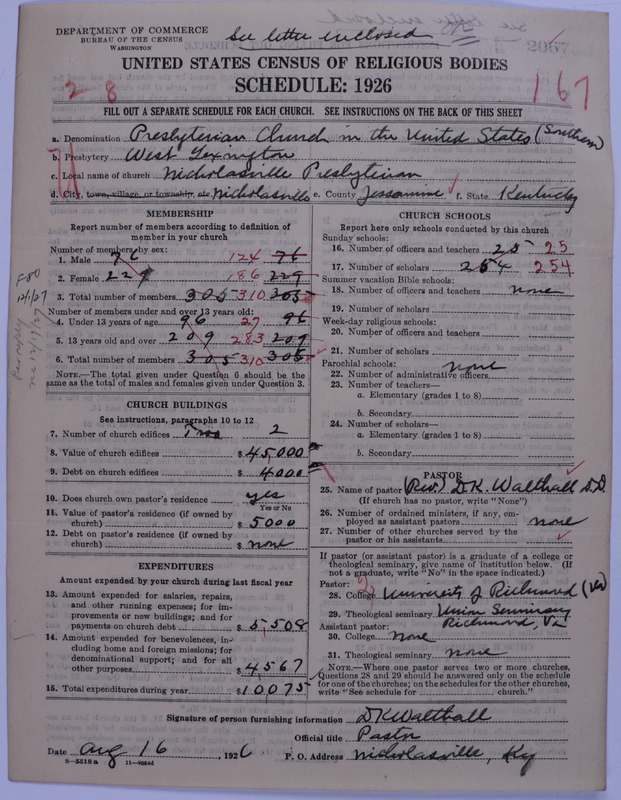 DEPARTMENT OF COMMERCE
BUREAU OF THE CENSUS
WASHINGTON
See letter enclosed
2067
UNITED STATES CENSUS OF RELIGIOUS BODIES
SCHEDULE: 1926
2 8
167
FILL OUT A SEPARATE SCHEDULE FOR EACH CHURCH. SEE INSTRUCTIONS ON THE BACK OF THIS SHEET
a. Denomination Presbyterian Church in the United States (Southern)
b. Presbytery West Lexington
c. Local name of church Nicholasville Presbyterian
d. City, town, village, or township, etc Nicholasville e. County Jessamine f. State Kentucky
MEMBERSHIP
Report number of members according to definition of
member in your church
Number of members by sex:
1. Male 76 124 76
2. Female 229 186 229
3. Total number of members 305 310 305
Number of members under and over 13 years old:
4. Under 13 years of age 96 27 96
5. 13 years old and over 209 283 209
6. Total number of members 305 310 305
NOTE.—The total given under Question 6 should be the
same as the total of males and females given under Question 3.
CHURCH BUILDINGS
See instructions, paragraphs 10 to 12
7. Number of church edifices Two 2
8. Value of church edifices $ 45,000
9. Debt on church edifices $ 4000
10. Does church own pastor's residence yes
Yes or No
11. Value of pastor's residence (if owned by
church) $ 5000
12. Debt on pastor's residence (if owned by
church) $ none
EXPENDITURES
Amount expended by your church during last fiscal year
13. Amount expended for salaries, repairs,
and other running expenses; for im-
provements or new buildings; and for
payments on church debt $ 5,508
14. Amount expended for benevolences, in-
cluding home and foreign missions; for
denominational support; and for all
other purposes $ 4567
15. Total expenditures during year $ 10,075
CHURCH SCHOOLS
Report here only schools conducted by this church
Sunday schools:
16. Number of officers and teachers 25 25
17. Number of scholars 254 254
Summer vacation Bible schools:
18. Number of officers and teachers none
19. Number of scholars
Week-day religious schools:
20. Number of officers and teachers
21. Number of scholars
Parochial schools: none
22. Number of administrative officers
23. Number of teachers—
a. Elementary (grades 1 to 8)
b. Secondary
24. Number of scholars—
a. Elementary (grades 1 to 8)
b. Secondary
PASTOR
25. Name of pastor (Rev.) D.K. Walthall D.D.
(If church has no pastor, write "None")
26. Number of ordained ministers, if any, em-
ployed as assistant pastors none
27. Number of other churches served by the
pastor or his assistants
If pastor (or assistant pastor) is a graduate of a college or
theological seminary, give name of institution below. (If
not a graduate, write "No" in the space indicated.)
Pastor:
28. College University of Richmond (Va)
29. Theological seminary Union Seminary
Richmond, Va
Assistant pastor:
30. College none
31. Theological seminary none
NOTE.—Where one pastor serves two or more churches,
Questions 28 and 29 should be answered only on the schedule
for one of the churches; on the schedules for the other churches,
write "See schedule for church."
Signature of person furnishing information DK Walthall
Official title Pastor
Date Aug 16, 1926 P. O. Address Nicholasville, Ky
8-5518 a 11-9056d